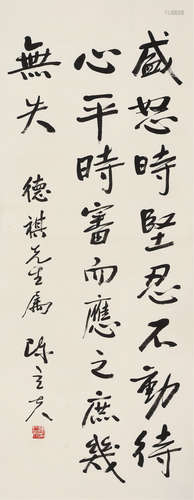 盛怒時堅忍不動待
心平時審而應之庶幾
無失
德祺先生屬 陳立夫